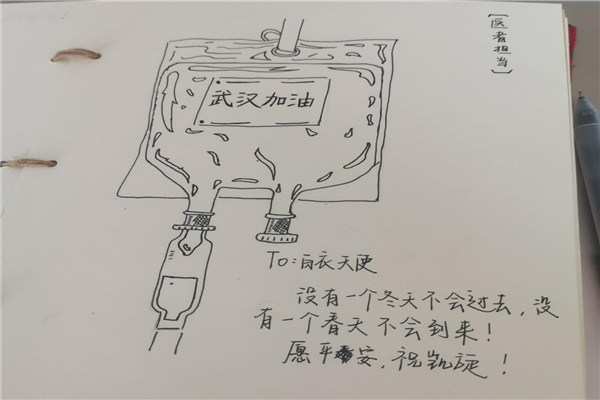 [医者担当]
武汉加油
To:白衣天使
没有一个冬天不会过去，没
有一个春天不会到来！
愿平安，祝凯旋！